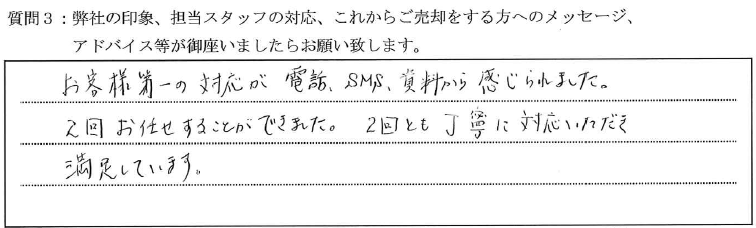 質問3：弊社の印象、担当スタッフの対応、これからご売却をする方へのメッセージ、
アドバイス等が御座いましたらお願い致します。
お客様第一の対応が電話、SMS、資料から感じられました。
2回お任せすることができました。2回とも丁寧に対応いただき
満足しています。